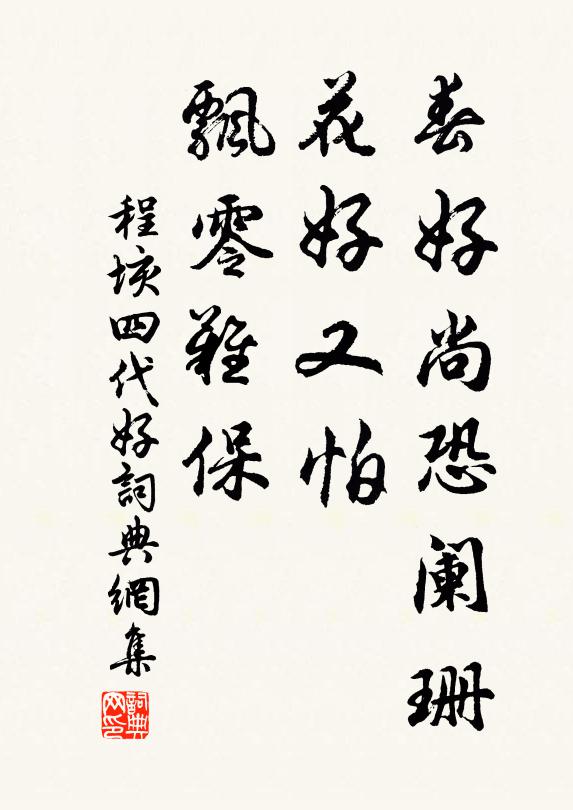 春好尚恐阑珊
花好又怕
飄零難保
程垓四代好詞典網集
詞典网印